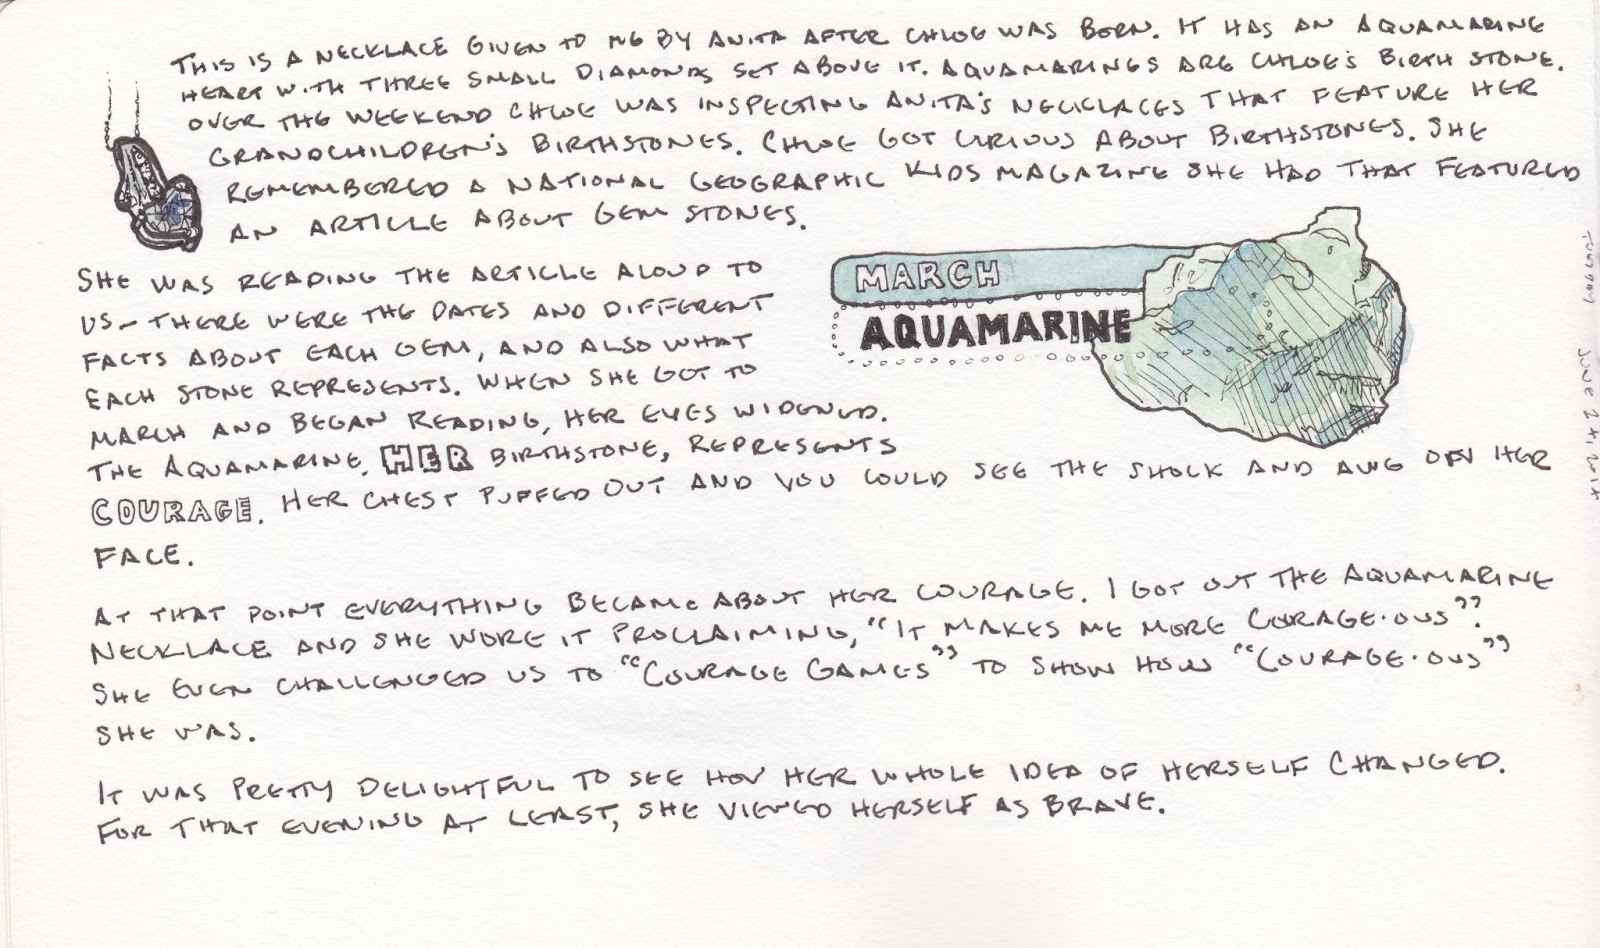 THIS IS A NECKLACE GIVEN TO ME BY ANITA AFTER CHLOE WAS BORN. IT HAS AN AQUAMARINE
HEART WITH THREE SMALL DIAMONDS SET ABOVE IT. AQUAMARINES ARE CHLOE'S BIRTH STONE.
OVER THE WEEKEND CHLOE WAS INSPECTING ANITA'S NECKLACES THAT FEATURE HER
GRANDCHILDREN'S BIRTHSTONES. CHLOE GOT CURIOUS ABOUT BIRTHSTONES. SHE
REMEMBERED A NATIONAL GEOGRAPHIC KIDS MAGAZINE SHE HAD THAT FEATURED
AN ARTICLE ABOUT GEM STONES.
SHE WAS READING THE ARTICLE ALOUD TO
US – THERE WERE THE DATES AND DIFFERENT
FACTS ABOUT EACH GEM, AND ALSO WHAT
EACH STONE REPRESENTS. WHEN SHE GOT TO
MARCH AND BEGAN READING, HER EYES WIDENED.
THE AQUAMARINE, HER BIRTHSTONE, REPRESENTS
COURAGE. HER CHEST PUFFED OUT AND YOU COULD SEE THE SHOCK AND AWE ON HER
FACE.
MARCH
AQUAMARINE
AT THAT POINT EVERYTHING BECAME ABOUT HER COURAGE. I GOT OUT THE AQUAMARINE
NECKLACE AND SHE WORE IT PROCLAIMING, "IT MAKES ME MORE COURAGE·OUS".
SHE EVEN CHALLENGED US TO "COURAGE GAMES" TO SHOW HOW "COURAGE·OUS"
SHE WAS.
IT WAS PRETTY DELIGHTFUL TO SEE HOW HER WHOLE IDEA OF HERSELF CHANGED.
FOR THAT EVENING AT LEAST, SHE VIEWED HERSELF AS BRAVE.
TUESDAY JUNE 24, 2014